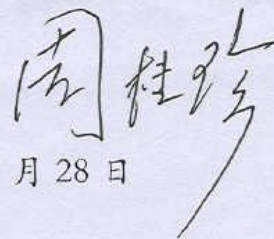 周桂珍
月 28 日